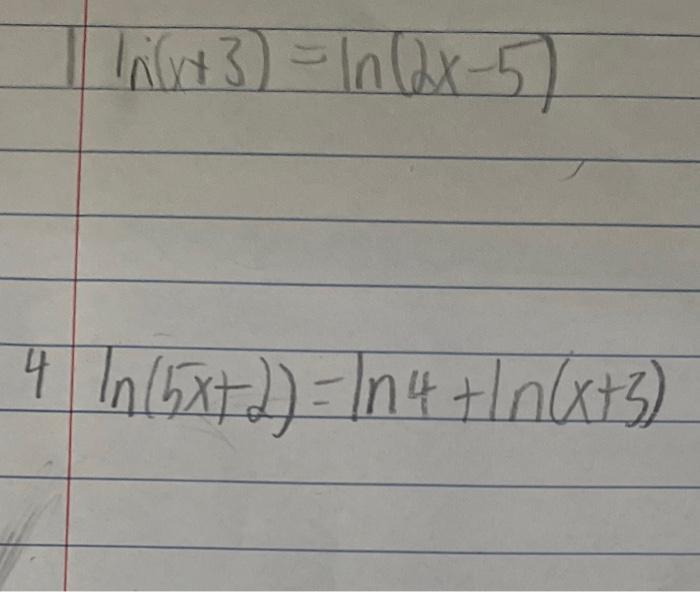 1 ln(x+3) = ln(2x-5)
4 ln(5x+2) = ln4 + ln(x+3)